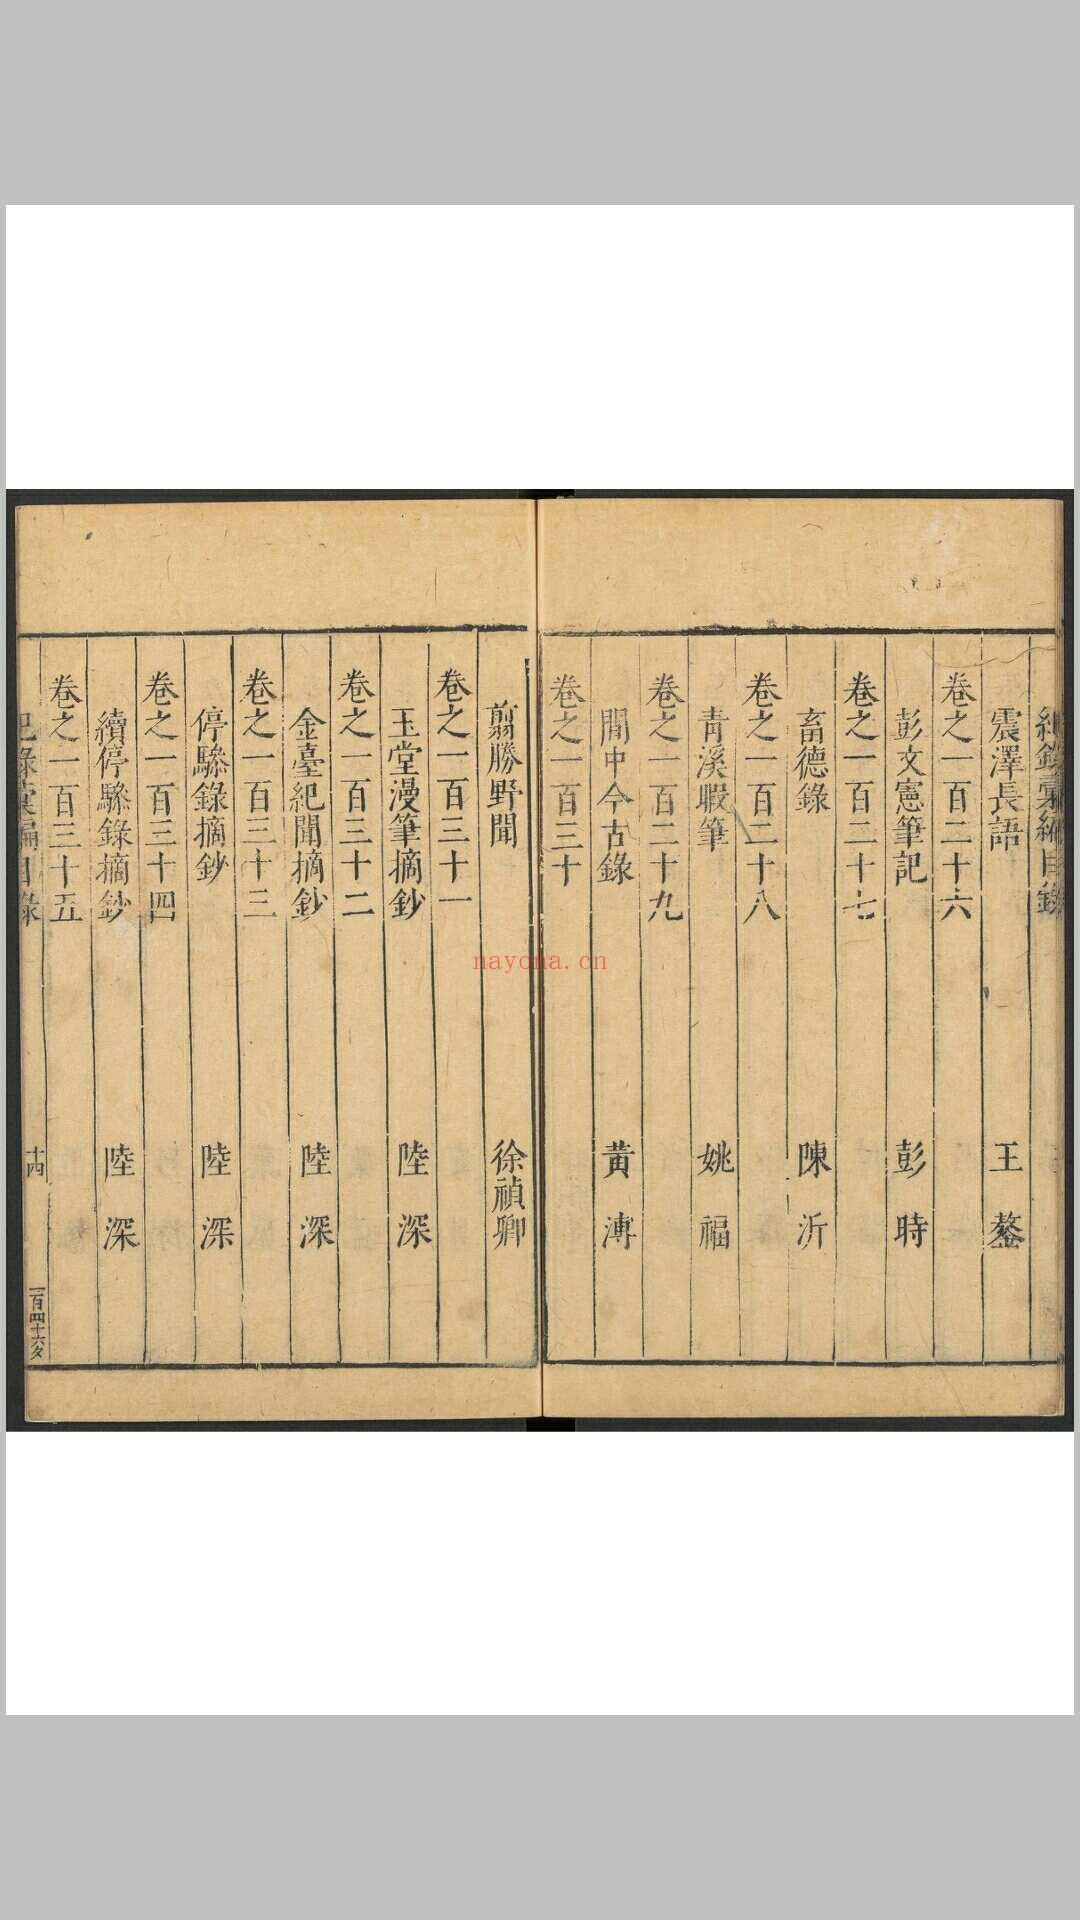 紀錄彙編目錄
震澤長語 王鏊
卷之一百二十六
彭文憲筆記 彭時
卷之一百二十七
畜德錄 陳沂
卷之一百二十八
青溪暇筆 姚福
卷之一百二十九
閒中今古錄 黃溥
卷之一百三十
翦勝野聞 徐禎卿
卷之一百三十一
玉堂漫筆摘鈔 陸深
卷之一百三十二
金臺紀聞摘鈔 陸深
卷之一百三十三
停驂錄摘鈔 陸深
卷之一百三十四
續停驂錄摘鈔 陸深
卷之一百三十五
紀錄彙編目錄 十四 一百四十六
nayona.cn